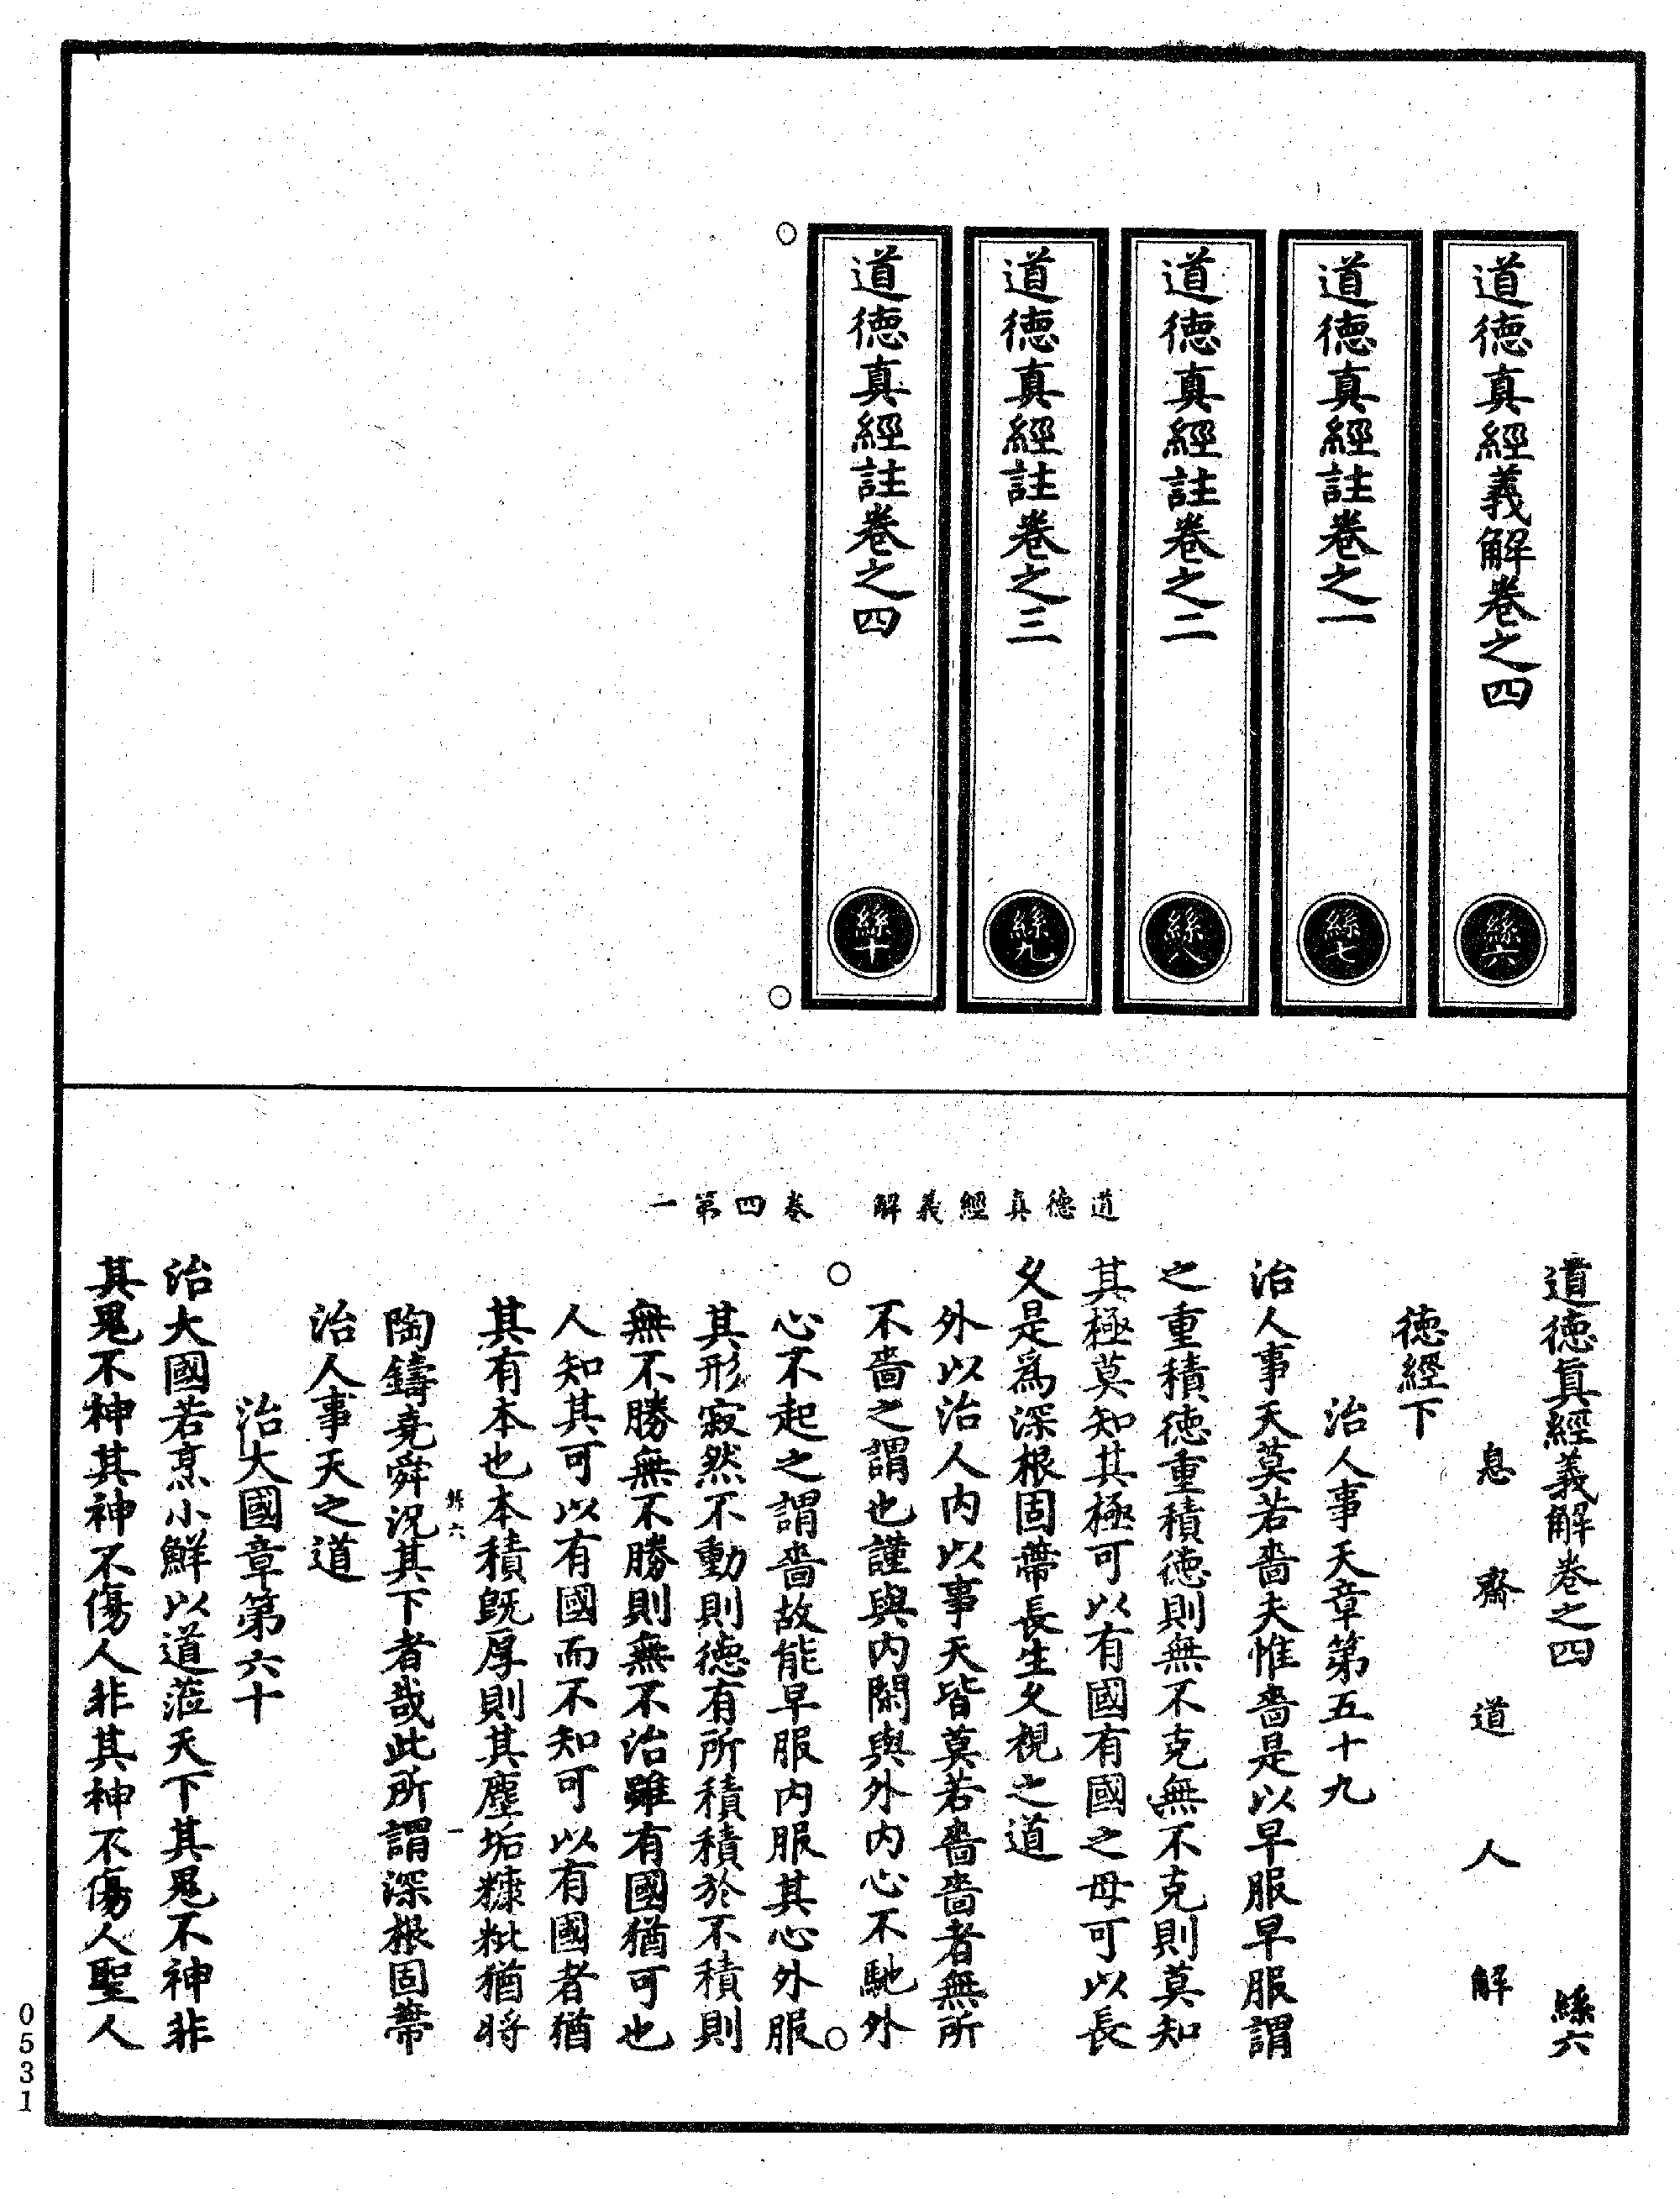 道德真經義解卷之四
絲六
道德真經註卷之一
絲七
道德真經註卷之二
絲八
道德真經註卷之三
絲九
道德真經註卷之四
絲十
道德真經義解 卷四第一
道德真經義解卷之四 絲六
息齋道人解
德經下
治人事天章第五十九
治人事天莫若嗇夫惟嗇是以早服早服謂
之重積德重積德則無不克無不克則莫知
其極莫知其極可以有國有國之母可以長
久是為深根固蔕長生久視之道
外以治人內以事天皆莫若嗇嗇者無所
不嗇之謂也謹與內閉與外內心不馳外
心不起之謂嗇故能早服內服其心外服
其形寂然不動則德有所積積於不積則
無不勝無不勝則無不治雖有國猶可也
人知其可以有國而不知可以有國者猶
其有本也本積既厚則其塵垢糠粃猶將
絲六 一
陶鑄堯舜況其下者哉此所謂深根固蔕
治人事天之道
治大國章第六十
治大國若烹小鮮以道蒞天下其鬼不神非
其鬼不神其神不傷人非其神不傷人聖人
0531